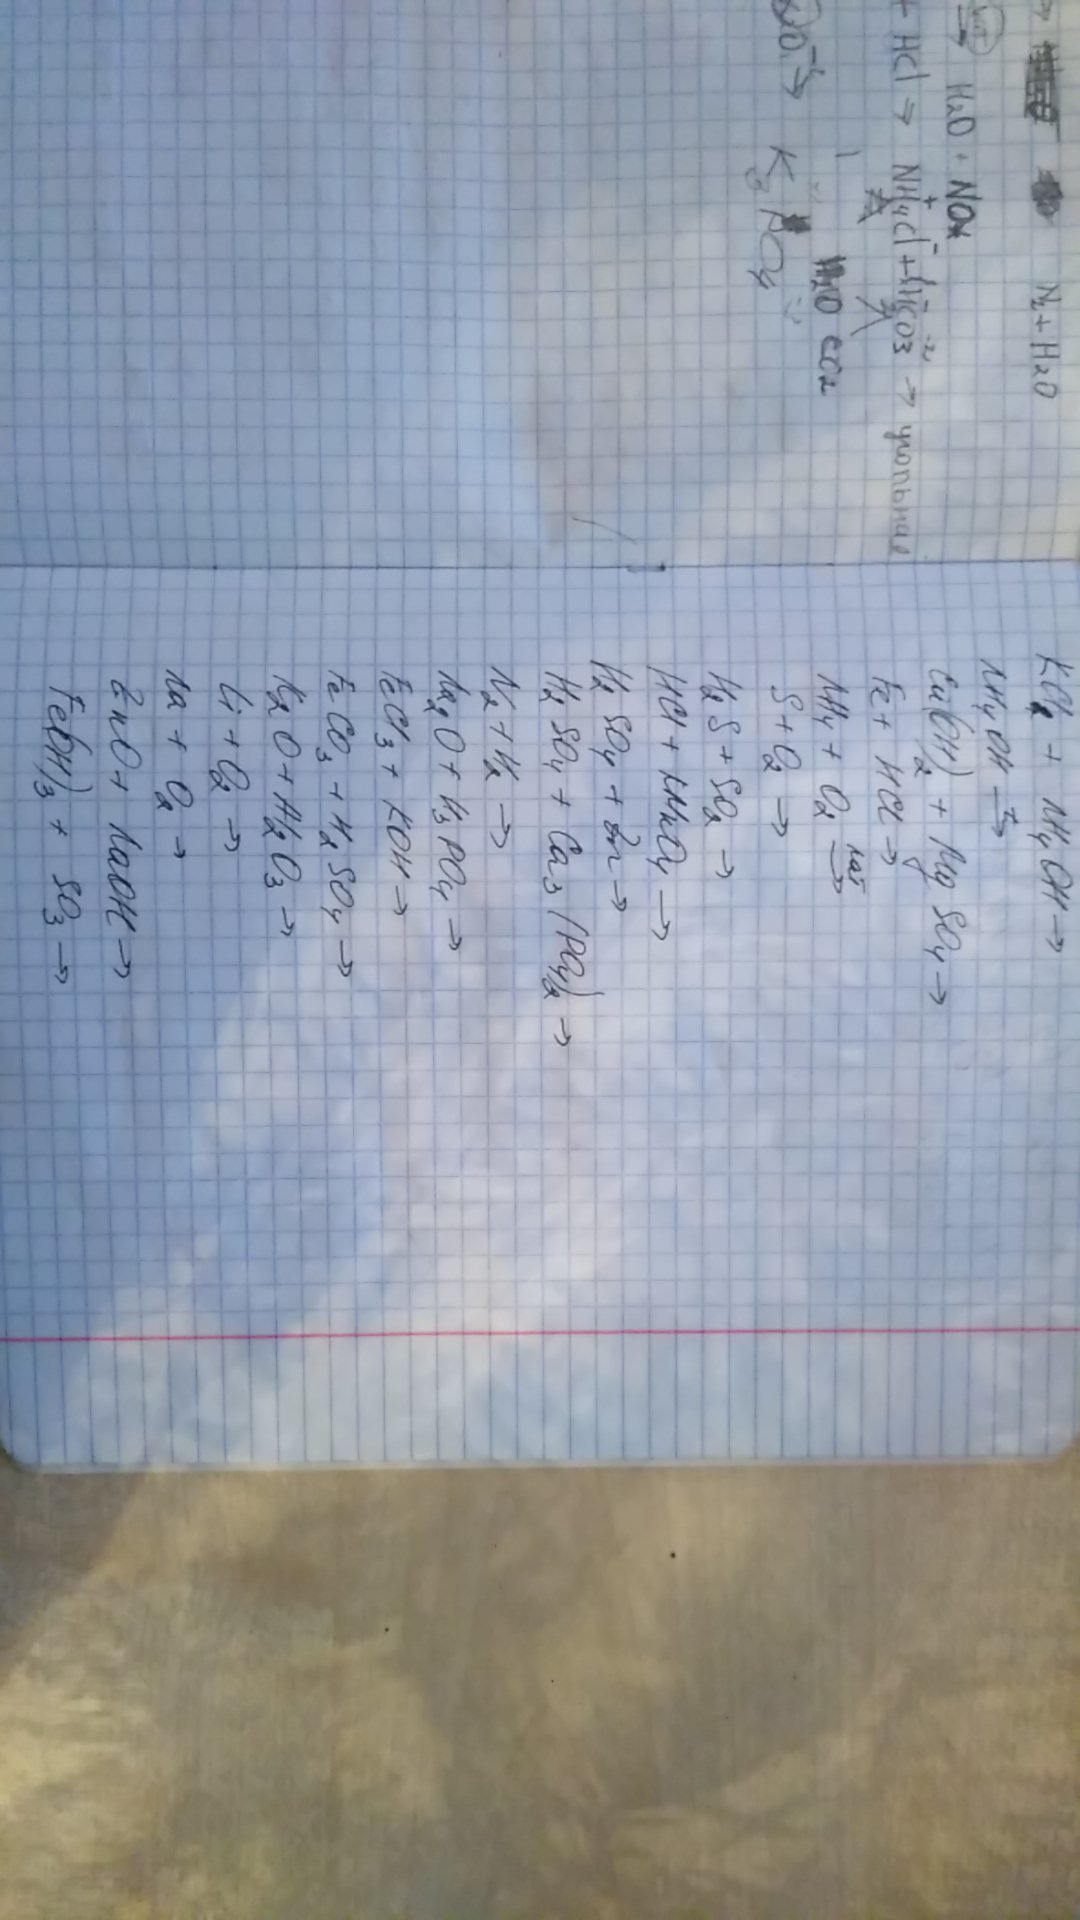 N₂ + H₂O
→ H₂O + NOx
+ HCl → NH₄⁺Cl⁻ + H₂CO₃⁻² →
H₂O CO₂
→ K₃PO₄
KCl₂ + NH₄OH →
NH₄OH t→
Cu(OH)₂ + MgSO₄ →
Fe + HCl →
NH₄ + O₂ кат→
S + O₂ →
H₂S + SO₂ →
HCl + KMnO₄ →
H₂SO₄ + Zn →
H₂SO₄ + Ca₃(PO₄)₂ →
N₂ + H₂ →
Na₂O + H₃PO₄ →
FeCl₃ + KOH →
FeCO₃ + H₂SO₄ →
K₂O + Al₂O₃ →
Li + O₂ →
Na + O₂ →
ZnO + NaOH →
Fe(OH)₃ + SO₃ →